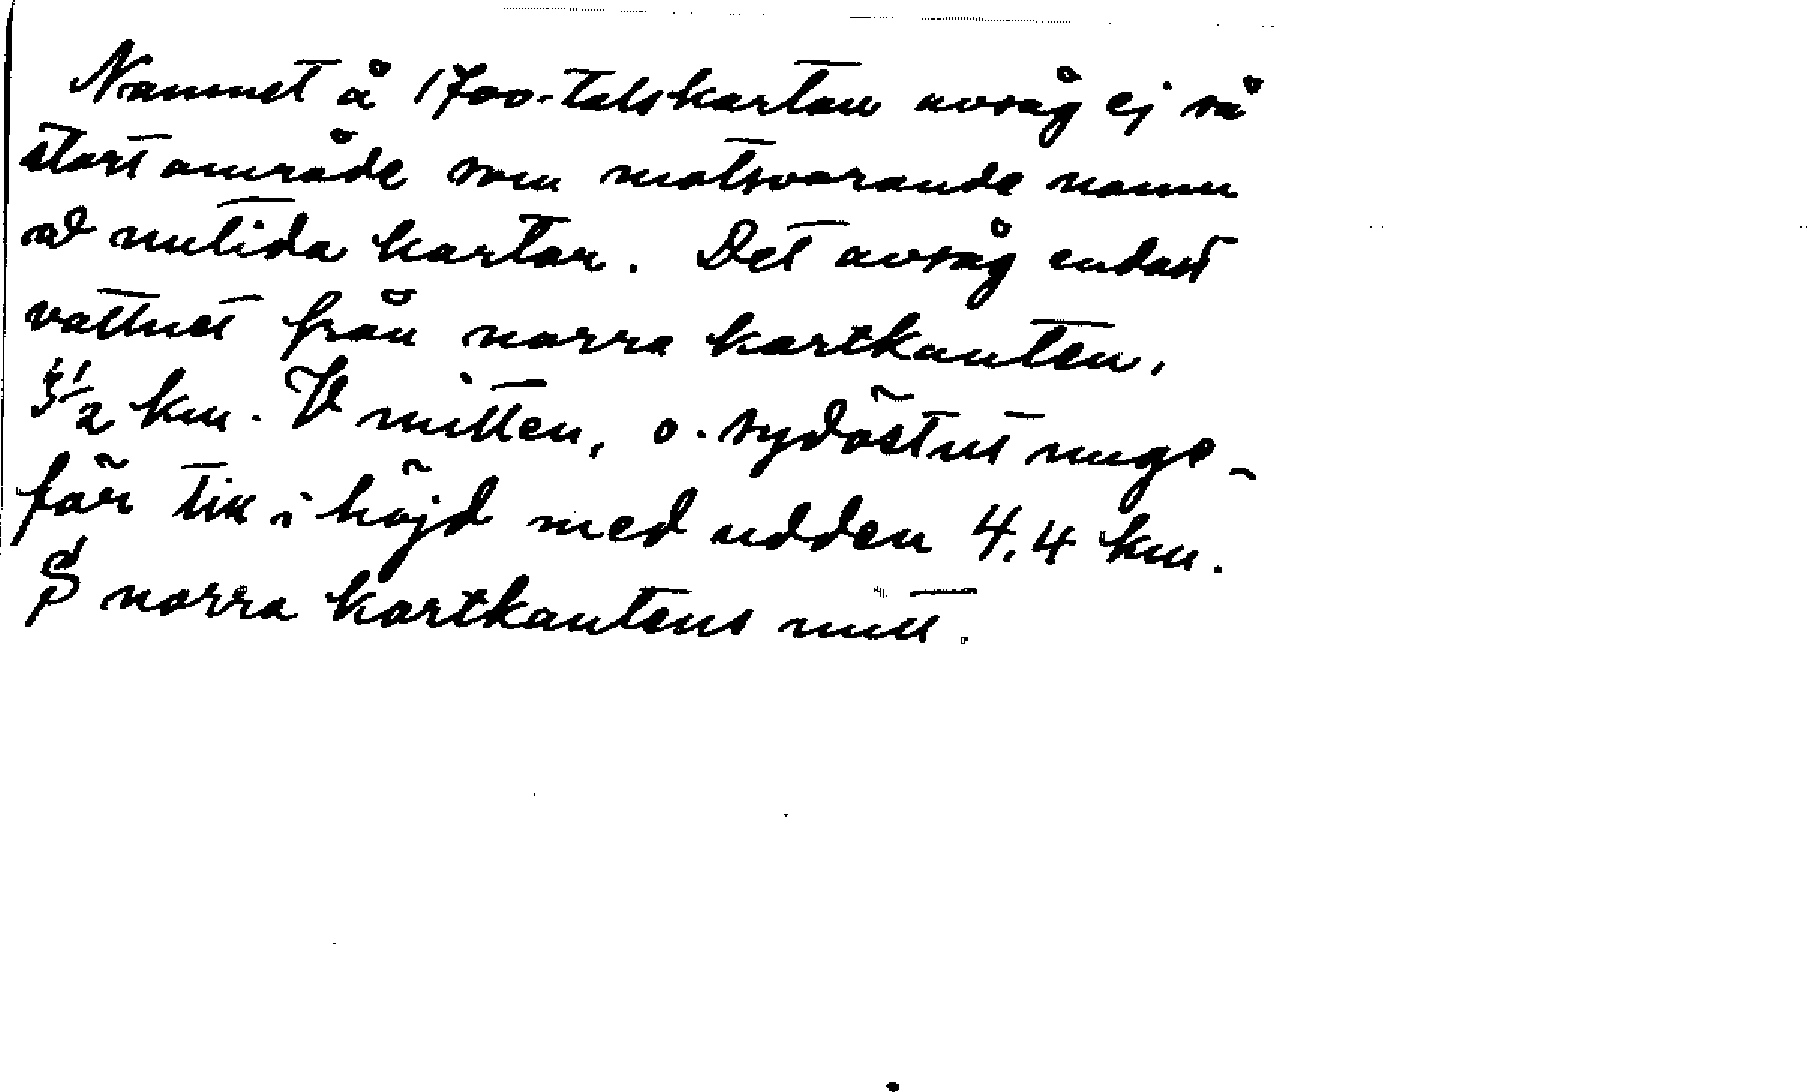 Namnet å 1700-talskartan avsåg ej så
stort område som motsvarande namn
å nutida kartor. Det avsåg endast
vattnet från norra kartkanten,
1/2 km. V mitten, o. sydöstut unge-
fär till i höjd med udden 4,4 km.
S norra kartkantens mitt.